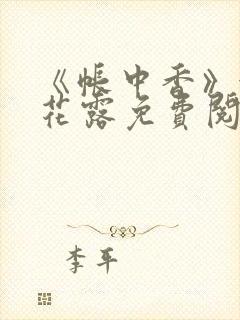 《帐中香》
花露免费阅
李平